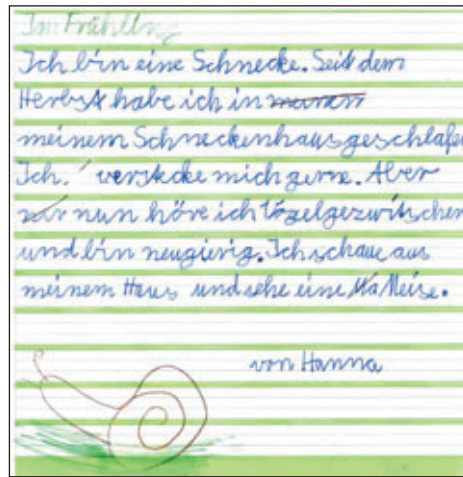 Im Frühling
Ich bin eine Schnecke. Seit dem
Herbst habe ich in meinen
meinem Schneckenhaus geschlafe
Ich verstecke mich gerne. Aber
nun höre ich Vögelgezwitscher
und bin neugierig. Ich schaue aus
meinem Haus und sehe eine Meise.
von Hanna